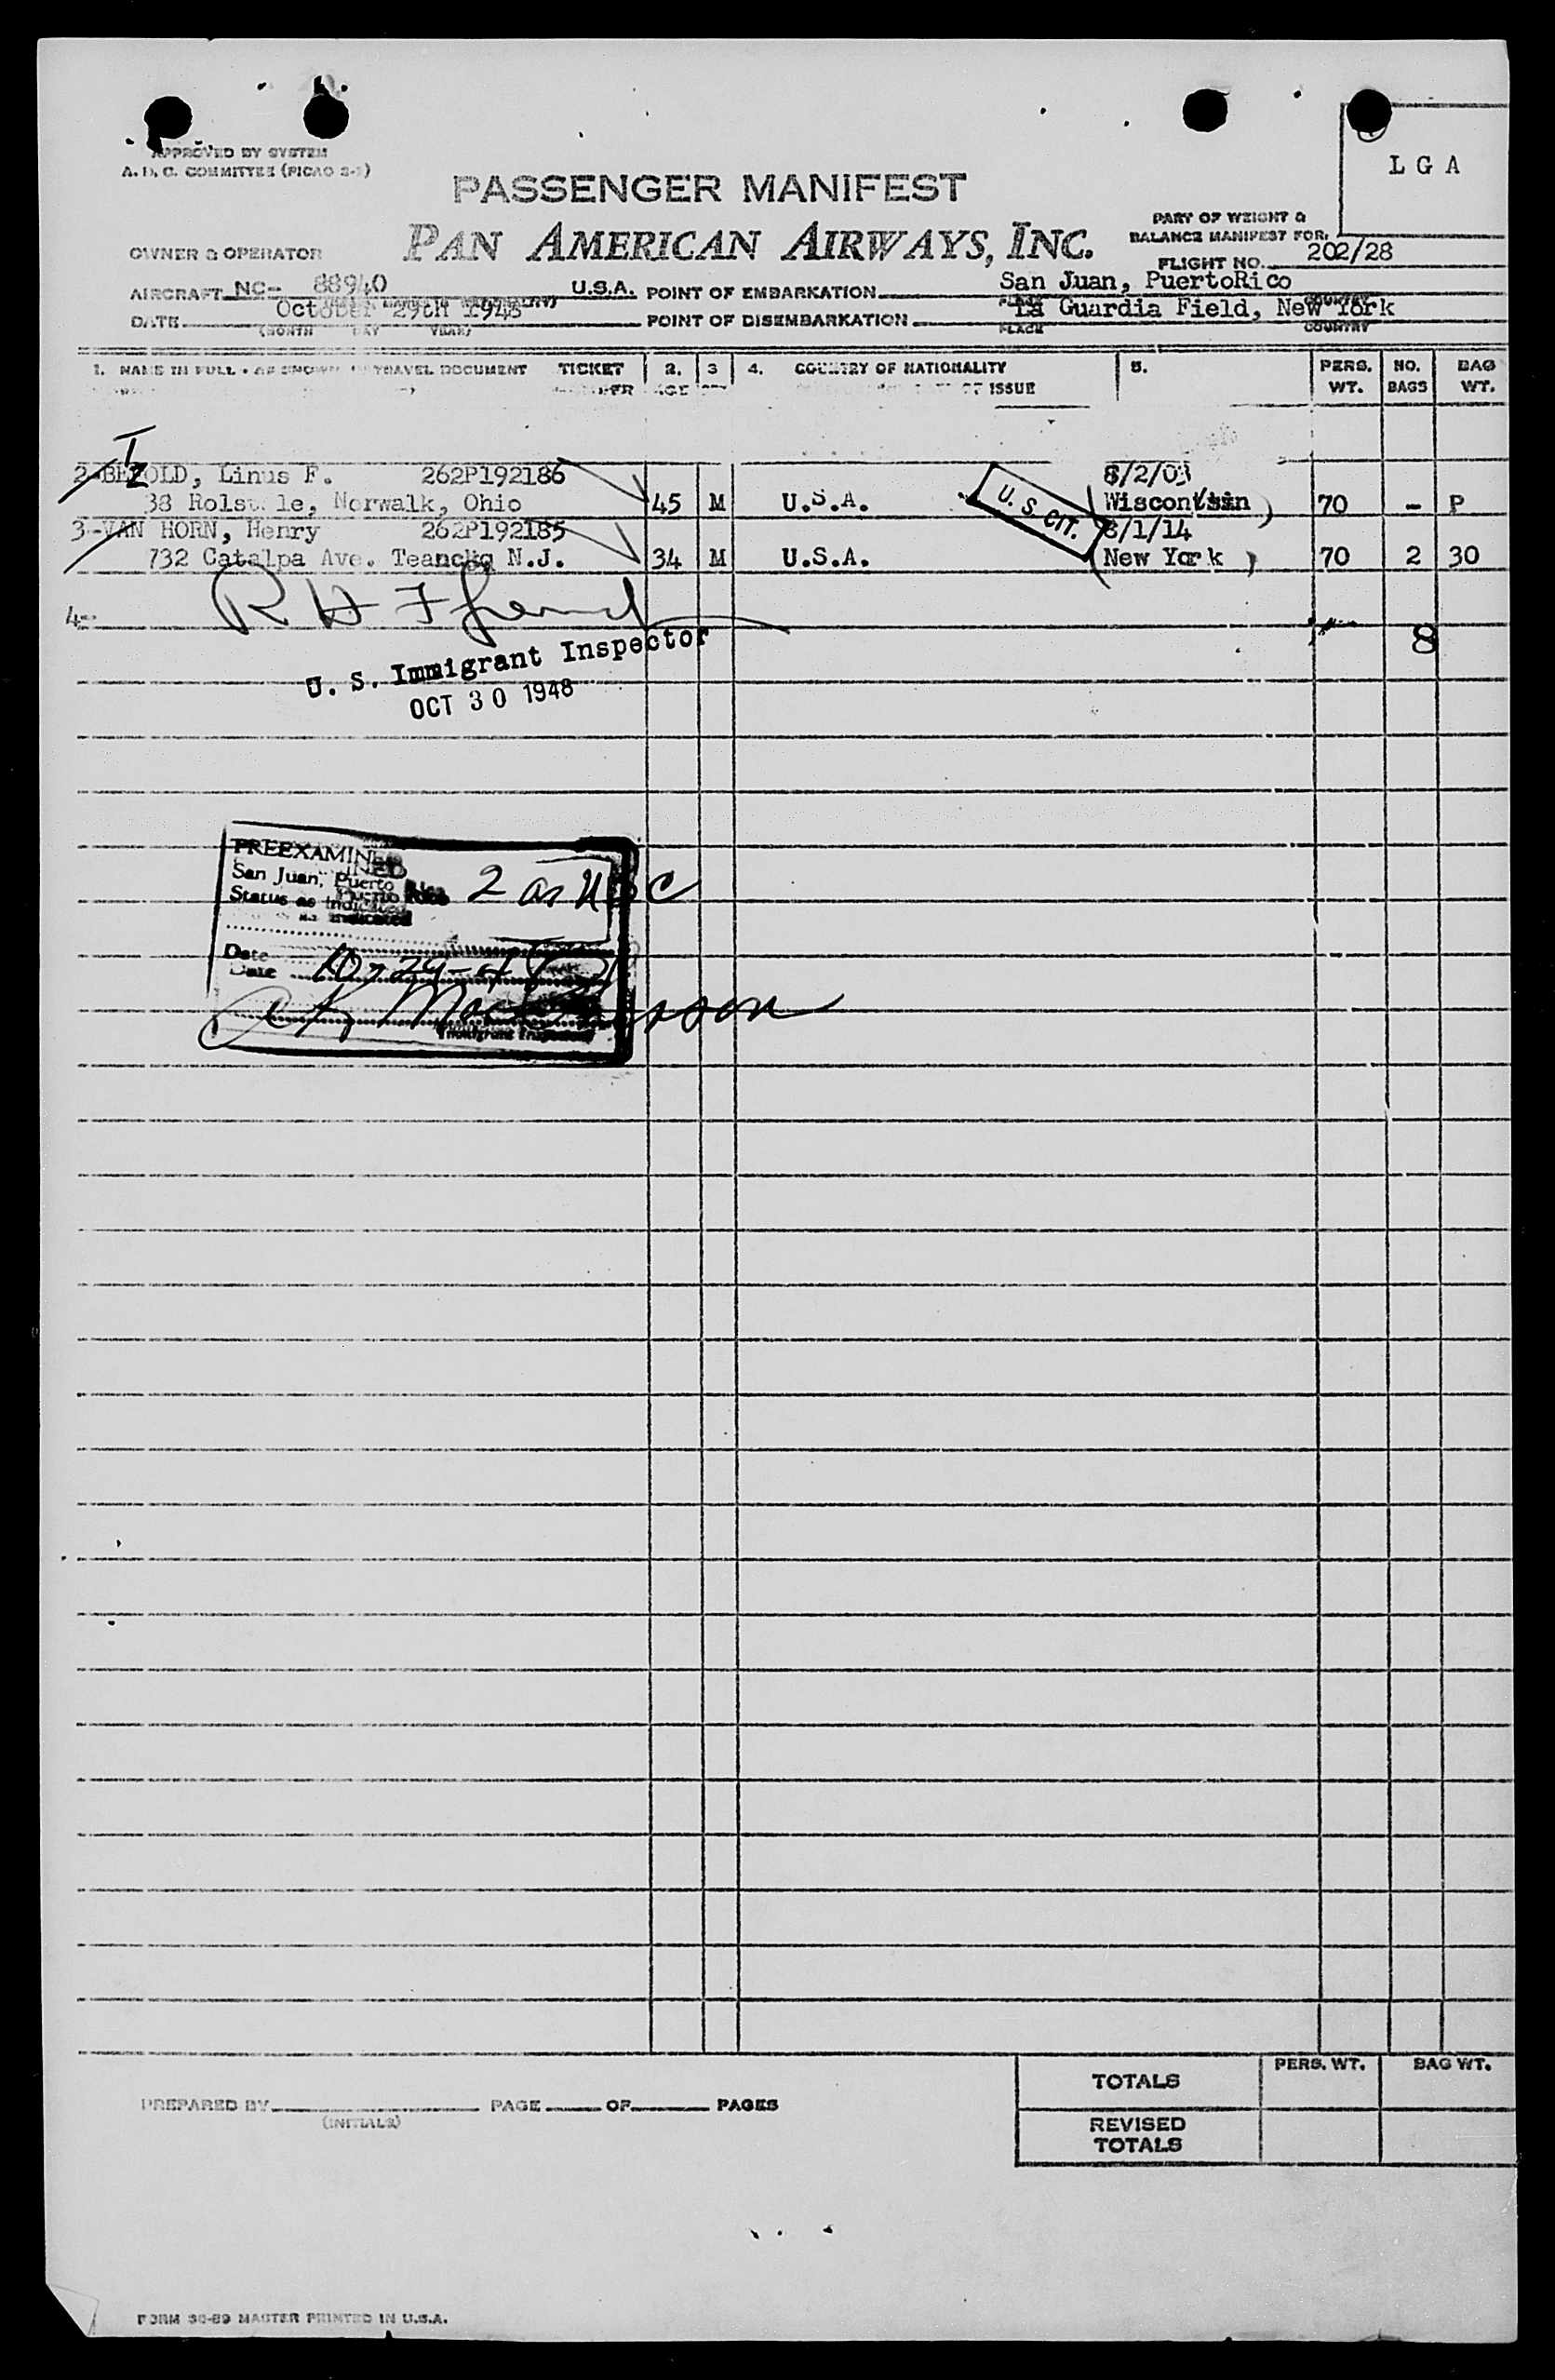 APPROVED BY SYSTEM
A. D. C. COMMITTEE (PICAO 2-1)
LGA
PASSENGER MANIFEST
PAN AMERICAN AIRWAYS, INC.
PART OF WEIGHT &
BALANCE MANIFEST FOR:
OWNER & OPERATOR
FLIGHT NO. 202/28
AIRCRAFT NC- 88940 U.S.A. POINT OF EMBARKATION San Juan, PuertoRico
DATE October 29th 1948 POINT OF DISEMBARKATION La Guardia Field, New York
(MONTH DAY YEAR) PLACE COUNTRY
1. NAME IN FULL - AS SHOWN IN TRAVEL DOCUMENT TICKET 2. 3 4. COUNTRY OF NATIONALITY 5. PERS. NO. BAG
AGE ISSUE WT. BAGS WT.
1
2
8/2/03
2- Linus F. 262P192186
38 Norwalk, Ohio 45 M U.S.A. U. S. CIT. 70 - P
3-VAN HORN, Henry 262P192185 8/1/14
732 Catalpa Ave. N.J. 34 M U.S.A. New York 70 2 30
4-
8
U. S. Immigrant Inspector
OCT 30 1948
PREEXAMINED
San Juan, Puerto Rico 2 as USC
Status as indicated
Date 10-29-48
Immigrant Inspector
TOTALS PERS. WT. BAG WT.
PREPARED BY PAGE OF PAGES
(INITIALS)
REVISED
TOTALS
FORM 30-89 MASTER PRINTED IN U.S.A.